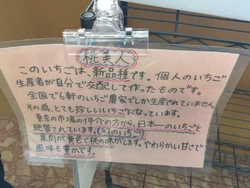 桃美人
このいちごは、新品種です。個人のいちご
生産者が自分で交配して作ったものです。
全国でも6軒のいちご農家でしか生産されていません。
その為、とても珍しいいちごとなっています。
東京の市場の仲介の方から、日本一のいちごと
絶賛されています。
果肉が黄色で桃の味がします。やわらかい甘さで
風味も豊かです。